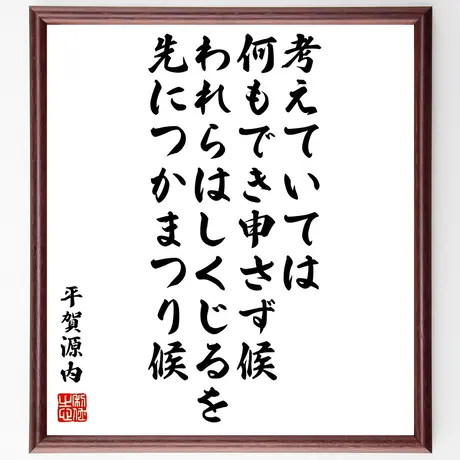 考えていては
何もでき申さず候
われらはしくじるを
先につかまつり候
平賀源内